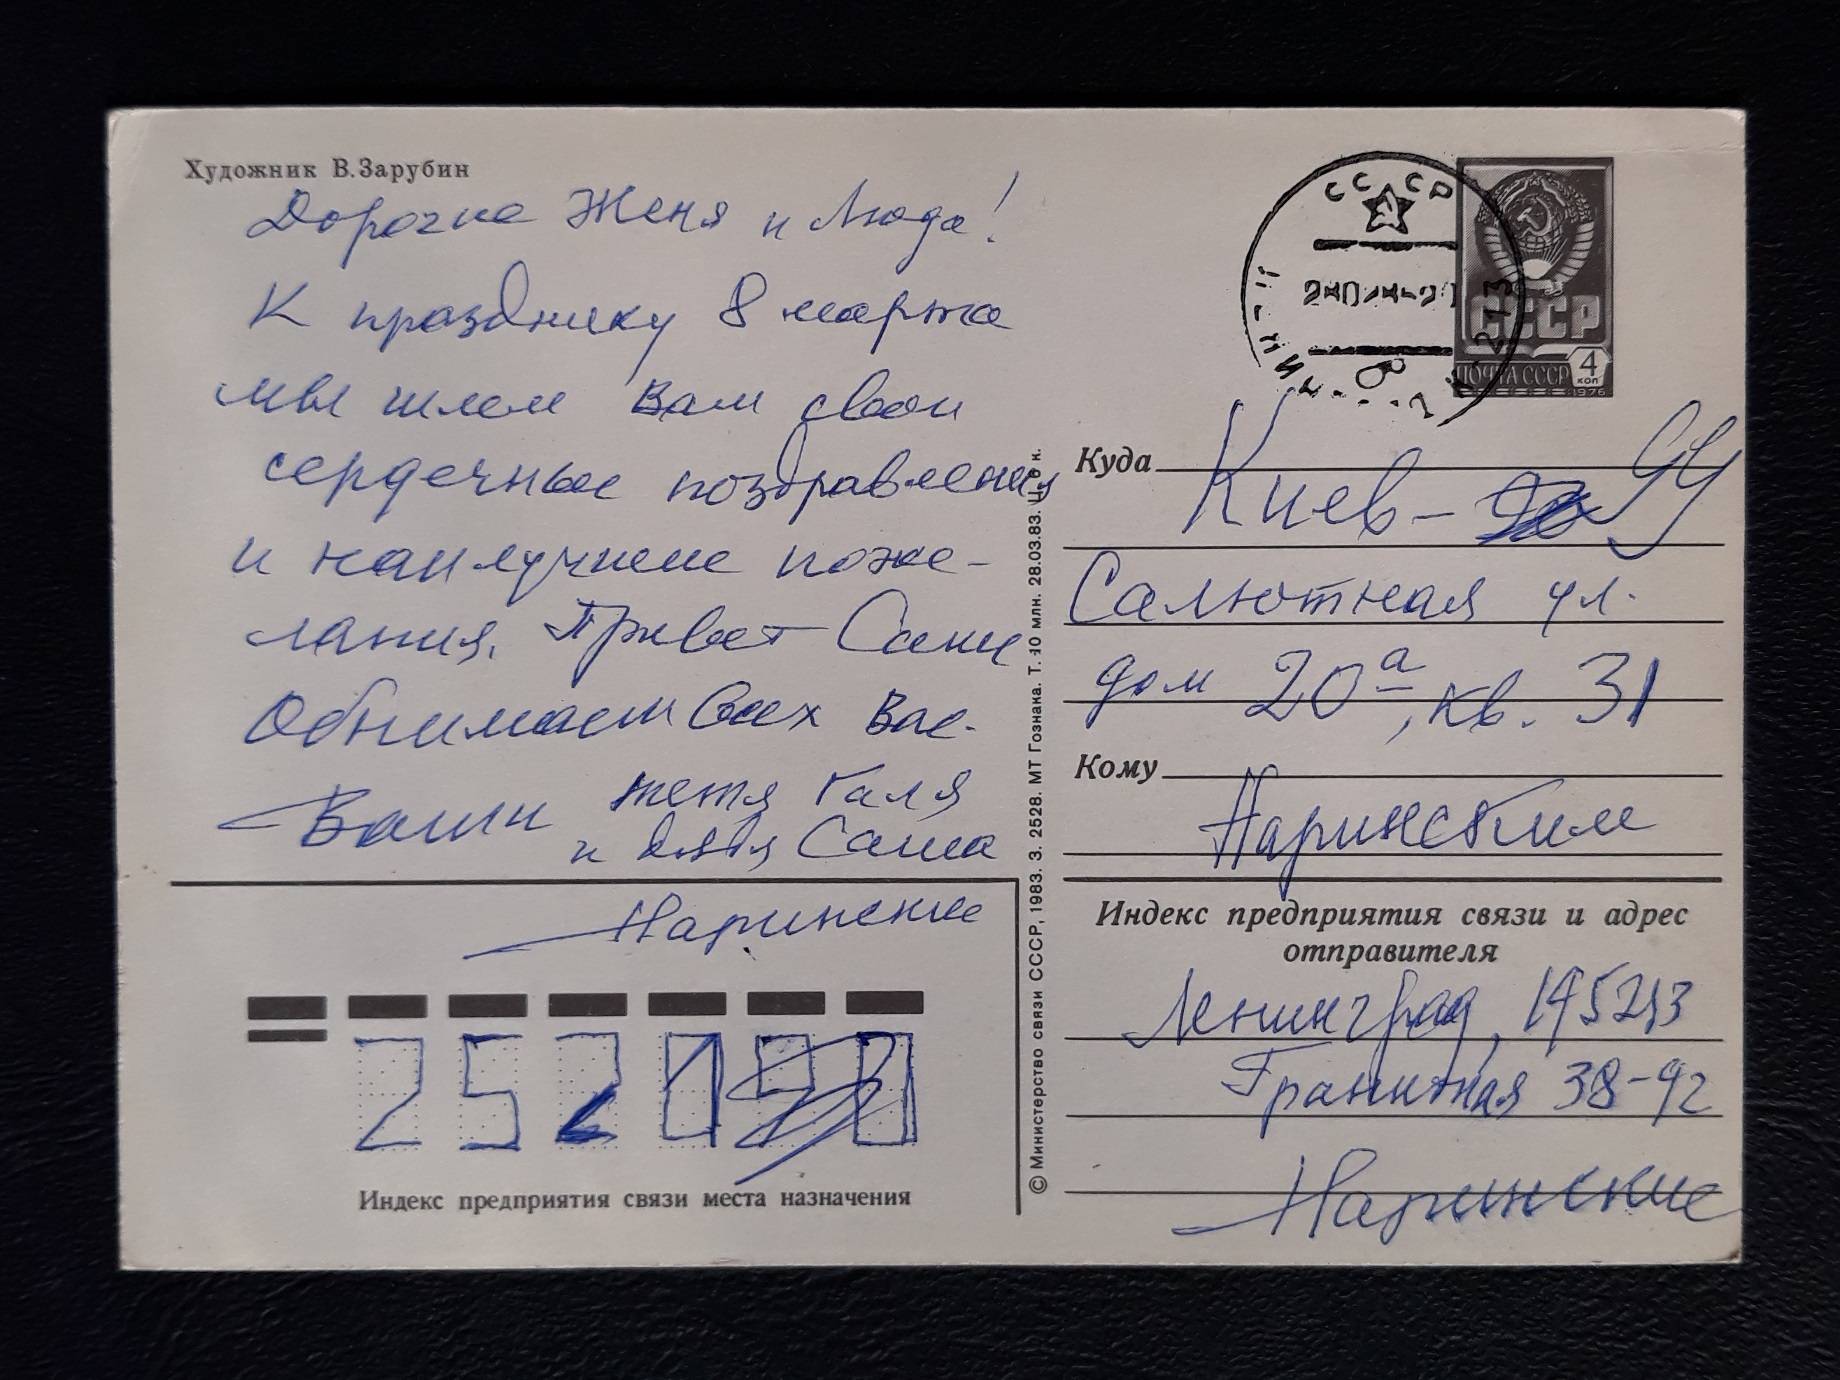 Художник В. Зарубин
Дорогие Женя и Люда!
К празднику 8 марта
мы шлем Вам свои
сердечные поздравления
и наилучшие поже-
лания. Привет Саше
Обнимаем всех Вас.
Ваши тетя Галя
и дядя Саша
Наринские
Индекс предприятия связи места назначения
© Министерство связи СССР, 1983. З. 2528. МТ Гознака. Т. 10 млн. 28.03.83. Ц. 6 к.
СССР
СССР
ПОЧТА СССР
4
коп
1976
Куда
Киев-
Салютная ул.
дом 20а, кв. 31
Кому
Наринским
Индекс предприятия связи и адрес
отправителя
Ленинград,
Гранитная 38-92
Наринские